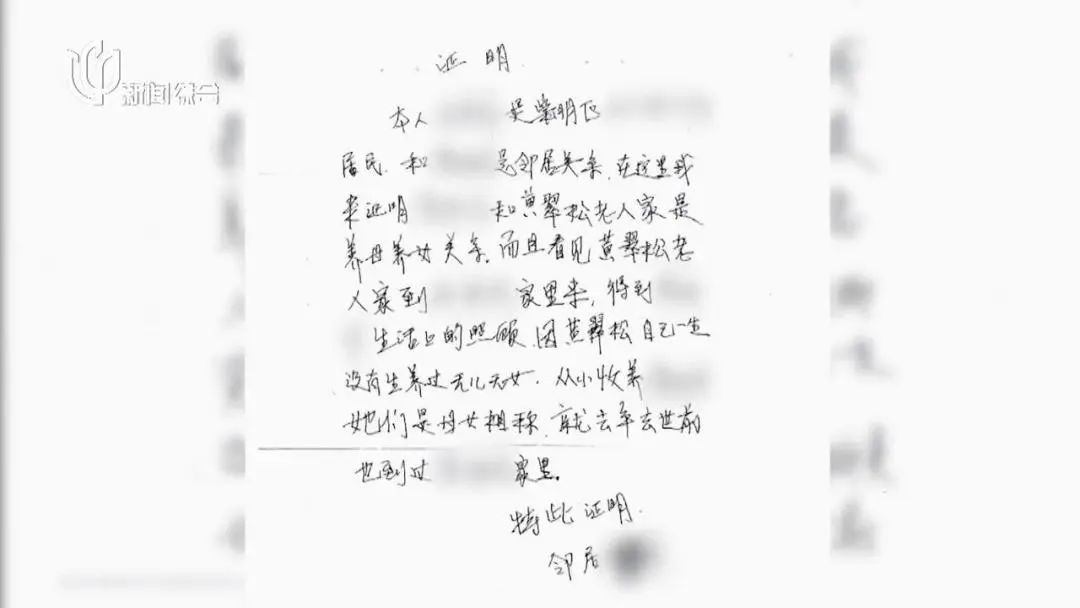 新闻综合
证明
本人 是紫明区
居民.和 是邻居关系.在这里我
来证明 和黄翠松老人家是
养母养女关系.而且看见黄翠松老
人家到 家里来,得到
生活上的照顾.因黄翠松自己一生
没有生养过无儿无女.从小收养
她们是母女相称.就去年去世前
也到过 家里.
特此证明.
邻居